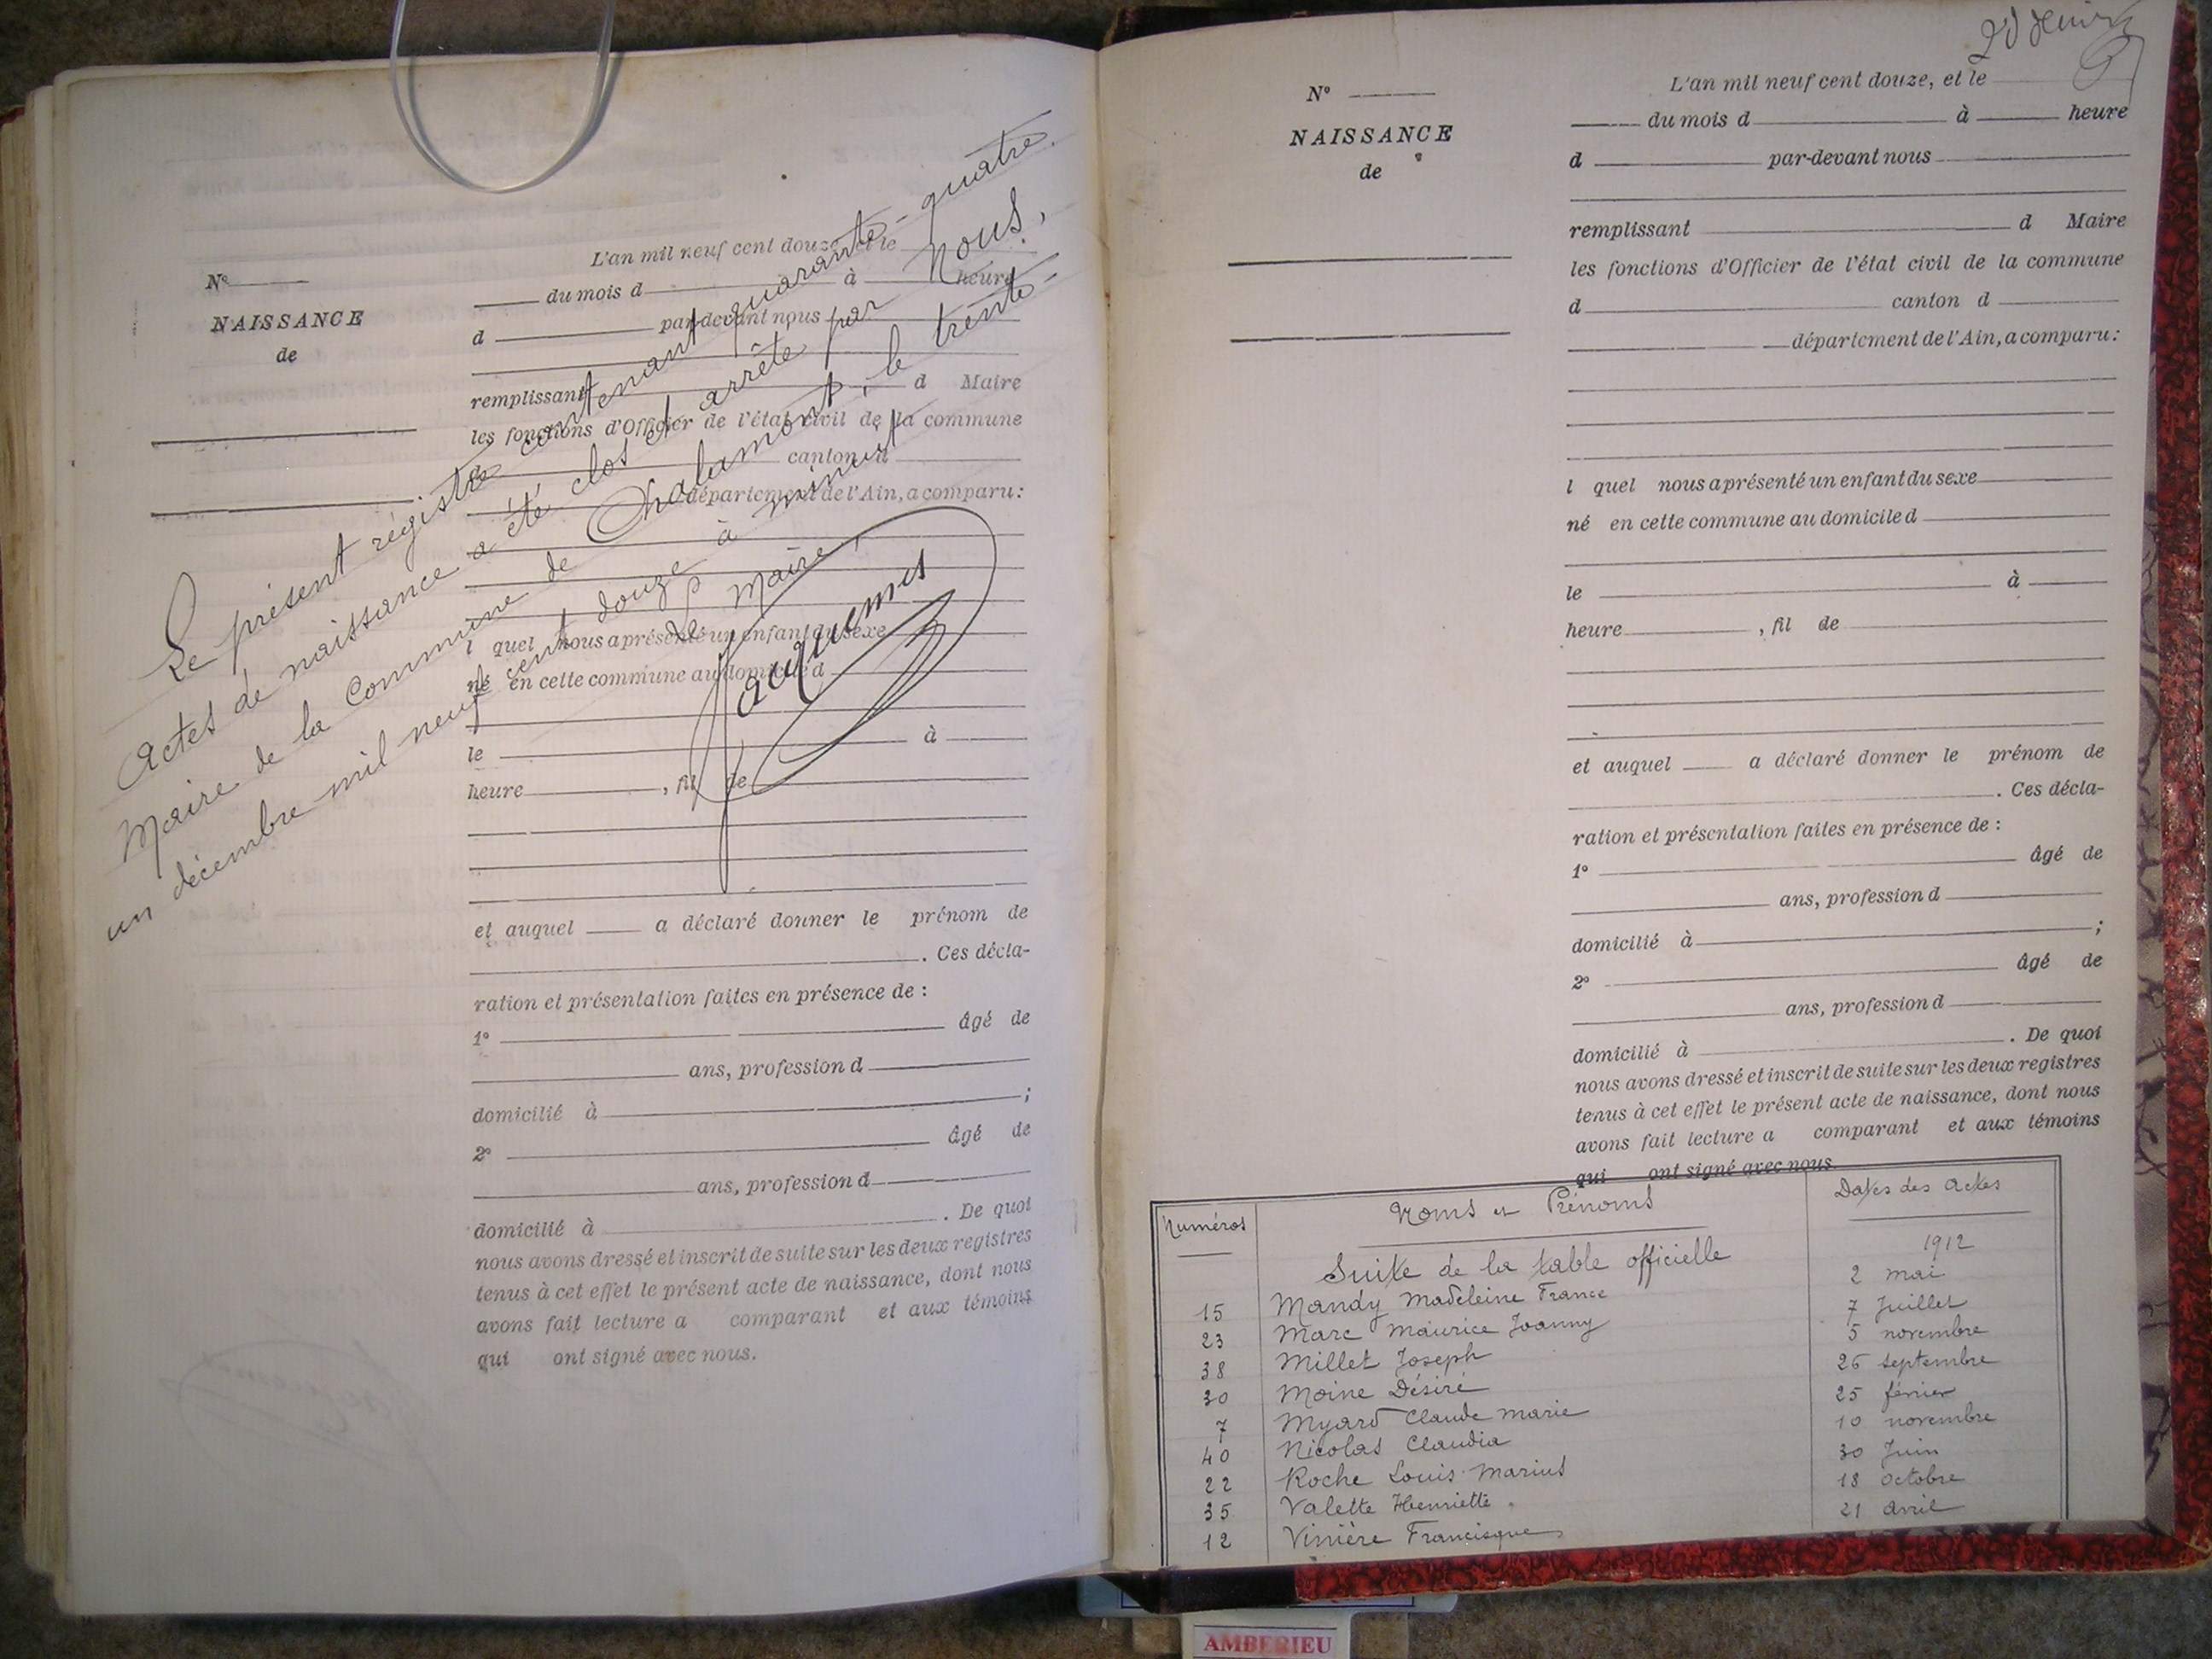 Nº
NAISSANCE
de
L'an mil neuf cent douze, et le
du mois d à heure
d par-devant nous
remplissant d Maire
les fonctions d'Officier de l'état civil de la commune
d canton d
département de l'Ain, a comparu:
l quel nous a présenté un enfant du sexe
né en cette commune au domicile d
le à
heure , fil de
et auquel a déclaré donner le prénom de
. Ces décla-
ration et présentation faites en présence de :
1º âgé de
ans, profession d
domicilié à ;
2º âgé de
ans, profession d
domicilié à . De quoi
nous avons dressé et inscrit de suite sur les deux registres
tenus à cet effet le présent acte de naissance, dont nous
avons fait lecture a comparant et aux témoins
qui ont signé avec nous.
Le présent régistre contenant quarante-quatre
Actes de naissance a été clos et arrêté par Nous,
Maire de la Commune de Chalamont, le trente-
un décembre mil neuf cent douze à minuit
Le Maire,
Jacquemes
Nº
NAISSANCE
de
L'an mil neuf cent douze, et le
du mois d à heure
d par-devant nous
remplissant d Maire
les fonctions d'Officier de l'état civil de la commune
d canton d
département de l'Ain, a comparu:
l quel nous a présenté un enfant du sexe
né en cette commune au domicile d
le à
heure , fil de
et auquel a déclaré donner le prénom de
. Ces décla-
ration et présentation faites en présence de :
1º âgé de
ans, profession d
domicilié à ;
2º âgé de
ans, profession d
domicilié à . De quoi
nous avons dressé et inscrit de suite sur les deux registres
tenus à cet effet le présent acte de naissance, dont nous
avons fait lecture a comparant et aux témoins
qui ont signé avec nous
Numéros Noms et Prénoms Dates des actes
Suite de la table officielle 1912
15 Mandy Madeleine France 2 mai
23 Marc Maurice Joanny 7 Juillet
38 Millet Joseph 5 novembre
30 Moine Désiré 26 septembre
7 Myard Claude Marie 25 février
40 Nicolas Claudia 10 novembre
22 Roche Louis Marius 30 Juin
35 Valette Henriette 18 octobre
12 Vinière Francisque 21 avril
AMBERIEU